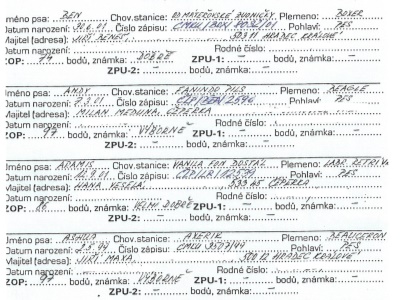 Jméno psa: BEN Chov.stanice: Plemeno: BOXER
Datum narození: Číslo zápisu: CMKU/BOX Pohlaví: PES
Majitel (adresa): JIŘÍ BENEŠ, 503 11 HRADEC KRÁLOVÉ
Datum narození: Rodné číslo:
ZOP: 79 bodů, známka: DOBŘE ZPU-1: – bodů, známka: –
ZPU-2: – bodů, známka: –
Jméno psa: ANDY Chov.stanice: FANINDO PILS Plemeno: BEAGLE
Datum narození: Číslo zápisu: Pohlaví: PES
Majitel (adresa): MILAN MEDUNA, CEPERKA
Datum narození: Rodné číslo:
ZOP: 97 bodů, známka: VÝBORNĚ ZPU-1: – bodů, známka: –
ZPU-2: – bodů, známka: –
Jméno psa: ADAMIS Chov.stanice: VANILA FON DOSTAL Plemeno: LABR. RETRIV
Datum narození: Číslo zápisu: Pohlaví: PES
Majitel (adresa): HANA VESELÁ, 533 45 CEPERKA
Datum narození: Rodné číslo:
ZOP: 86 bodů, známka: VELMI DOBŘE ZPU-1: – bodů, známka: –
ZPU-2: – bodů, známka: –
Jméno psa: Chov.stanice: AXERIK Plemeno: BEAUCERON
Datum narození: Číslo zápisu: Pohlaví: PES
Majitel (adresa): JIŘÍ MAXA, HRADEC KRÁLOVÉ
Datum narození: Rodné číslo:
ZOP: 97 bodů, známka: VÝBORNĚ ZPU-1: – bodů, známka: –
ZPU-2: – bodů, známka: –